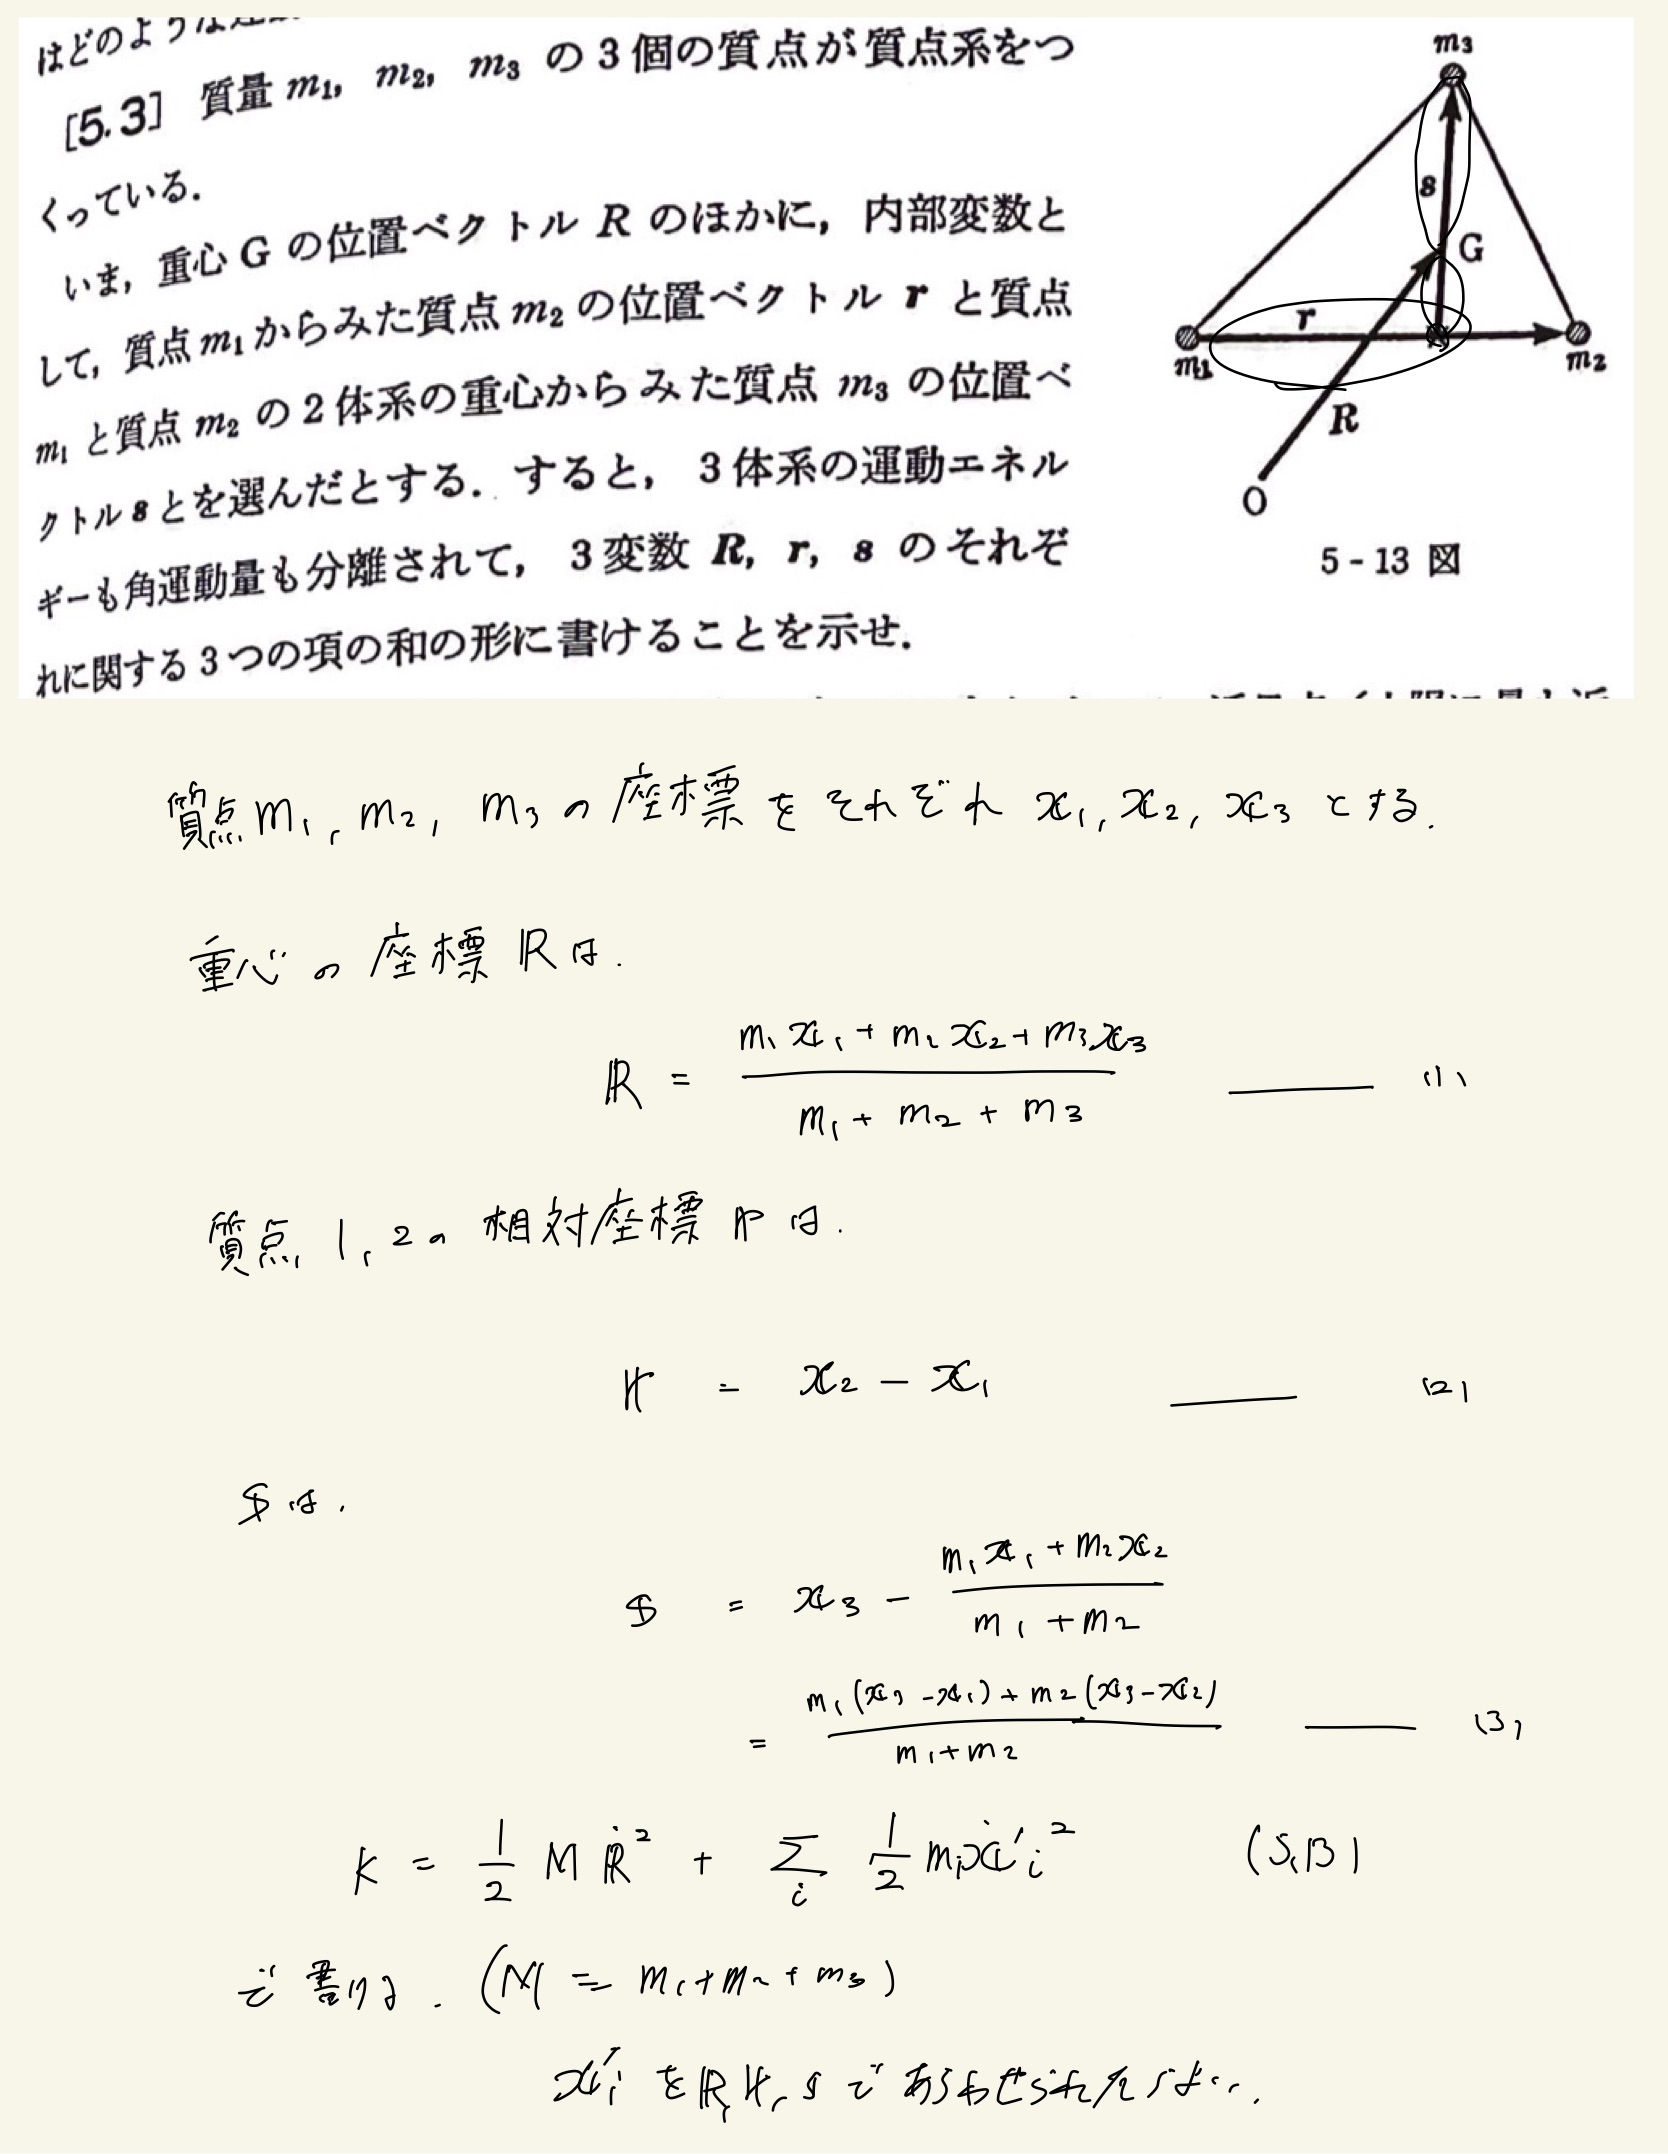 はどのような運動
[5.3] 質量 m₁, m₂, m₃ の3個の質点が質点系をつ
くっている.
いま, 重心 G の位置ベクトル R のほかに, 内部変数と
して, 質点 m₁ からみた質点 m₂ の位置ベクトル r と質点
m₁ と質点 m₂ の2体系の重心からみた質点 m₃ の位置ベ
クトル s とを選んだとする. すると, 3体系の運動エネル
ギーも角運動量も分離されて, 3変数 R, r, s のそれぞ
れに関する3つの項の和の形に書けることを示せ.
m₃
s
G
r
m₁
m₂
R
O
5-13 図
質点 m₁, m₂, m₃ の座標をそれぞれ x₁, x₂, x₃ とする.
重心の座標 R は.
R = (m₁x₁ + m₂x₂ + m₃x₃) / (m₁ + m₂ + m₃) ―― (1)
質点 1, 2の相対座標 r は.
r = x₂ − x₁ ―― (2)
s は.
s = x₃ − (m₁x₁ + m₂x₂) / (m₁ + m₂)
= (m₁(x₃ − x₁) + m₂(x₃ − x₂)) / (m₁ + m₂) ―― (3)
K = 1/2 M Ṙ² + Σᵢ 1/2 mᵢ ẋ'ᵢ² (5.13)
で書ける. (M = m₁ + m₂ + m₃)
x'ᵢ を R, r, s であらわせられたらよい.